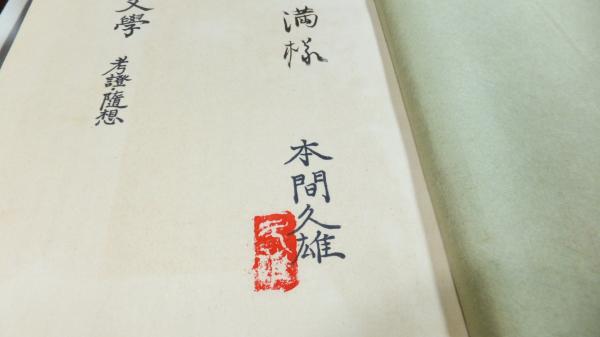 満様
本間久雄
久雄
文學
考證・隨想